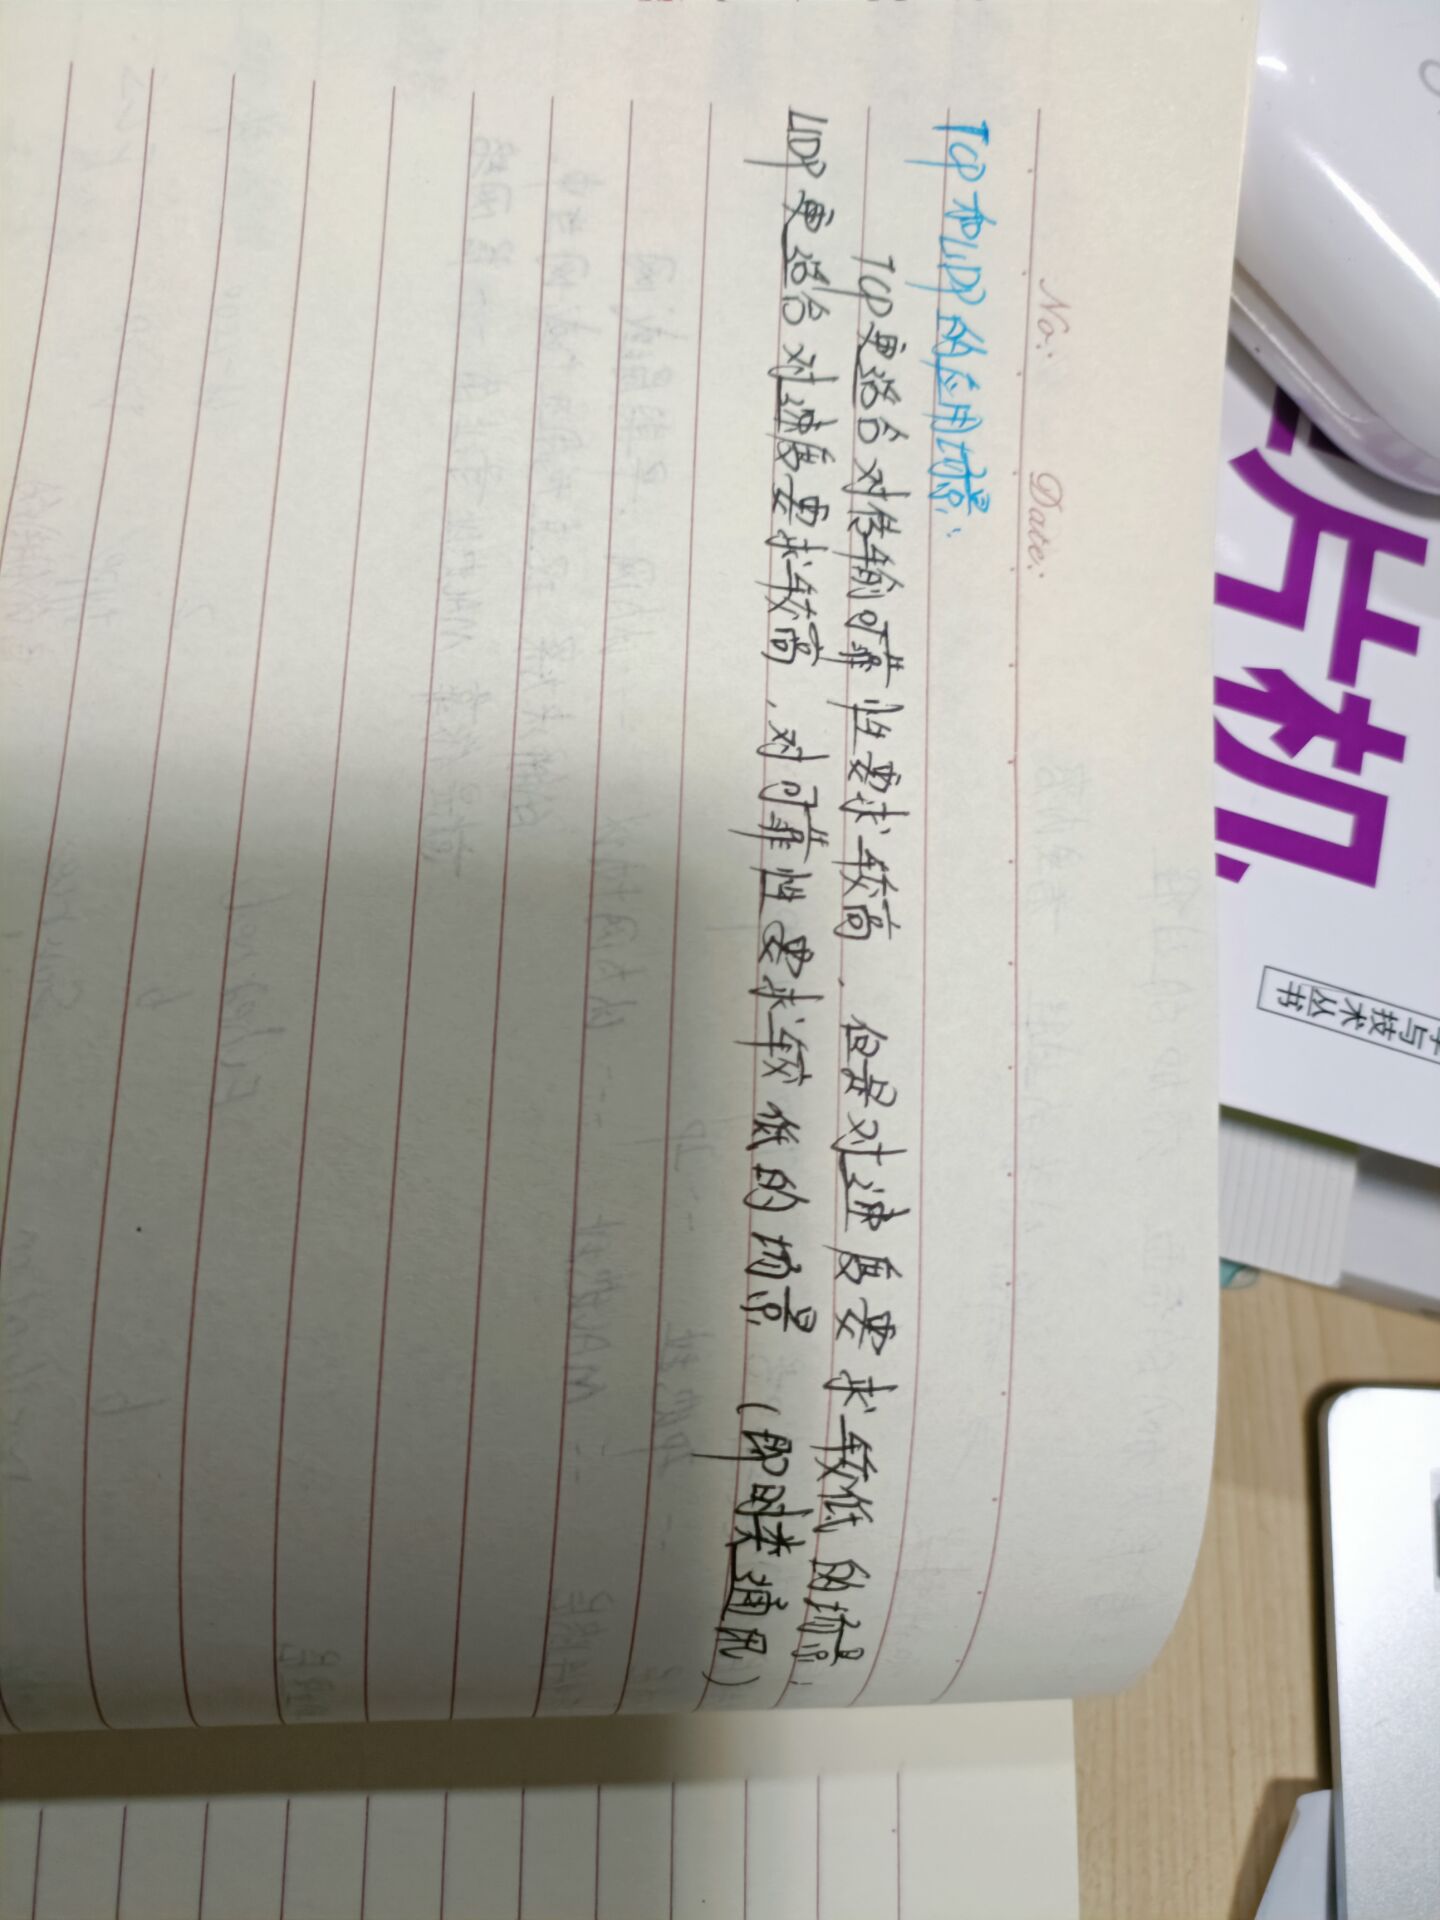 No:
Date:
TCP和UDP的应用场景:
TCP更适合对传输可靠性要求较高、但是对速度要求较低的场景;
UDP更适合对速度要求较高,对可靠性要求较低的场景(即时类通讯)
片机
与技术丛书